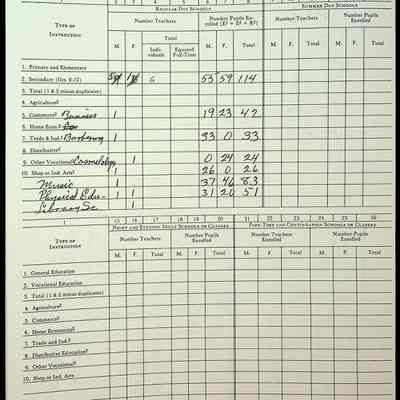 REGULAR DAY SCHOOLS SUMMER DAY SCHOOLS
TYPE OF INSTRUCTION Number Teachers Number Pupils Number Teachers Number Pupils Enrolled
M. F. Total M. F. T. M. F. T. M. F. T.
Individuals Equated Full-Time
1. Primary and Elementary
2. Secondary (Grs. 8-12) 6 53 59 114
3. Total (1 & 2 minus duplicates)
4. Agriculture
5. Commerce Business 1 19 23 42
6. Home Econ.
7. Trade & Ind. Barbering 1 33 0 33
8. Distributive
9. Other Vocational Cosmetology 1 0 24 24
10. Shop or Ind. Arts 1 26 0 26
Music 1 37 46 83
Physical Edu. 1 1 31 20 51
Library Sc 1
1 15 16 17 18 19 20 21 22 23 24 25 26
TYPE OF INSTRUCTION NIGHT AND EVENING ADULT SCHOOLS OR CLASSES PART-TIME AND CONTINUATION SCHOOLS OR CLASSES
Number Teachers Number Pupils Enrolled Number Teachers Enrolled Number Pupils Enrolled
M. F. T. M. F. T. M. F. T. M. F. T.
1. General Education
2. Vocational Education
3. Total (1 & 2 minus duplicates)
4. Agriculture
5. Commerce
6. Home Economics
7. Trade and Ind.
8. Distributive Education
9. Other Vocational
10. Shop or Ind. Arts